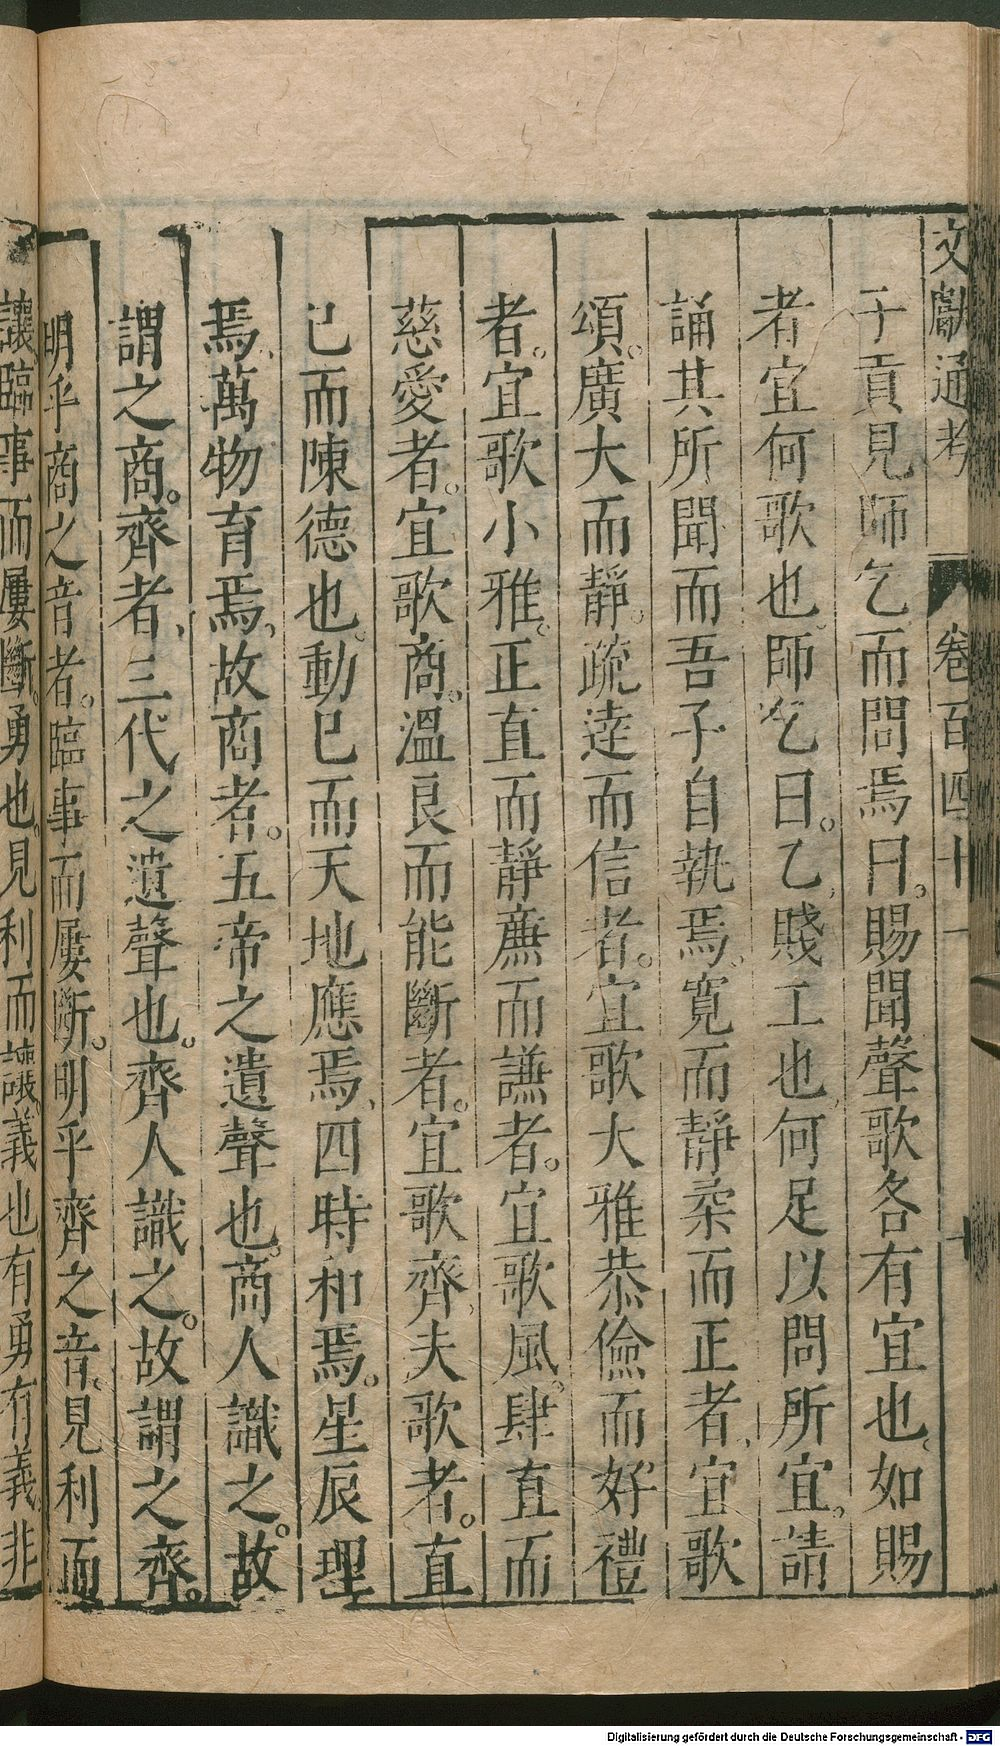 文獻通考 卷百四十一 十
子貢見師乞而問焉曰。賜聞聲歌各有宜也。如賜
者宜何歌也。師乞曰。乙賤工也何足以問所宜。請
誦其所聞而吾子自執焉。寬而靜柔而正者宜歌
頌。廣大而靜。疏逹而信者。宜歌大雅恭儉而好禮
者。宜歌小雅。正直而靜廉而謙者。宜歌風。肆直而
慈愛者。宜歌商。溫良而能斷者。宜歌齊夫歌者。直
己而陳德也。動已而天地應焉、四時和焉。星辰理
焉、萬物育焉、故商者。五帝之遺聲也。商人識之。故
謂之商。齊者、三代之遺聲也。齊人識之。故謂之齊。
明乎商之音者。臨事而屢斷。明乎齊之音。見利而
讓臨事而屢斷。勇也。見利而讓。義也有勇有義。非
Digitalisierung gefördert durch die Deutsche Forschungsgemeinschaft - DFG